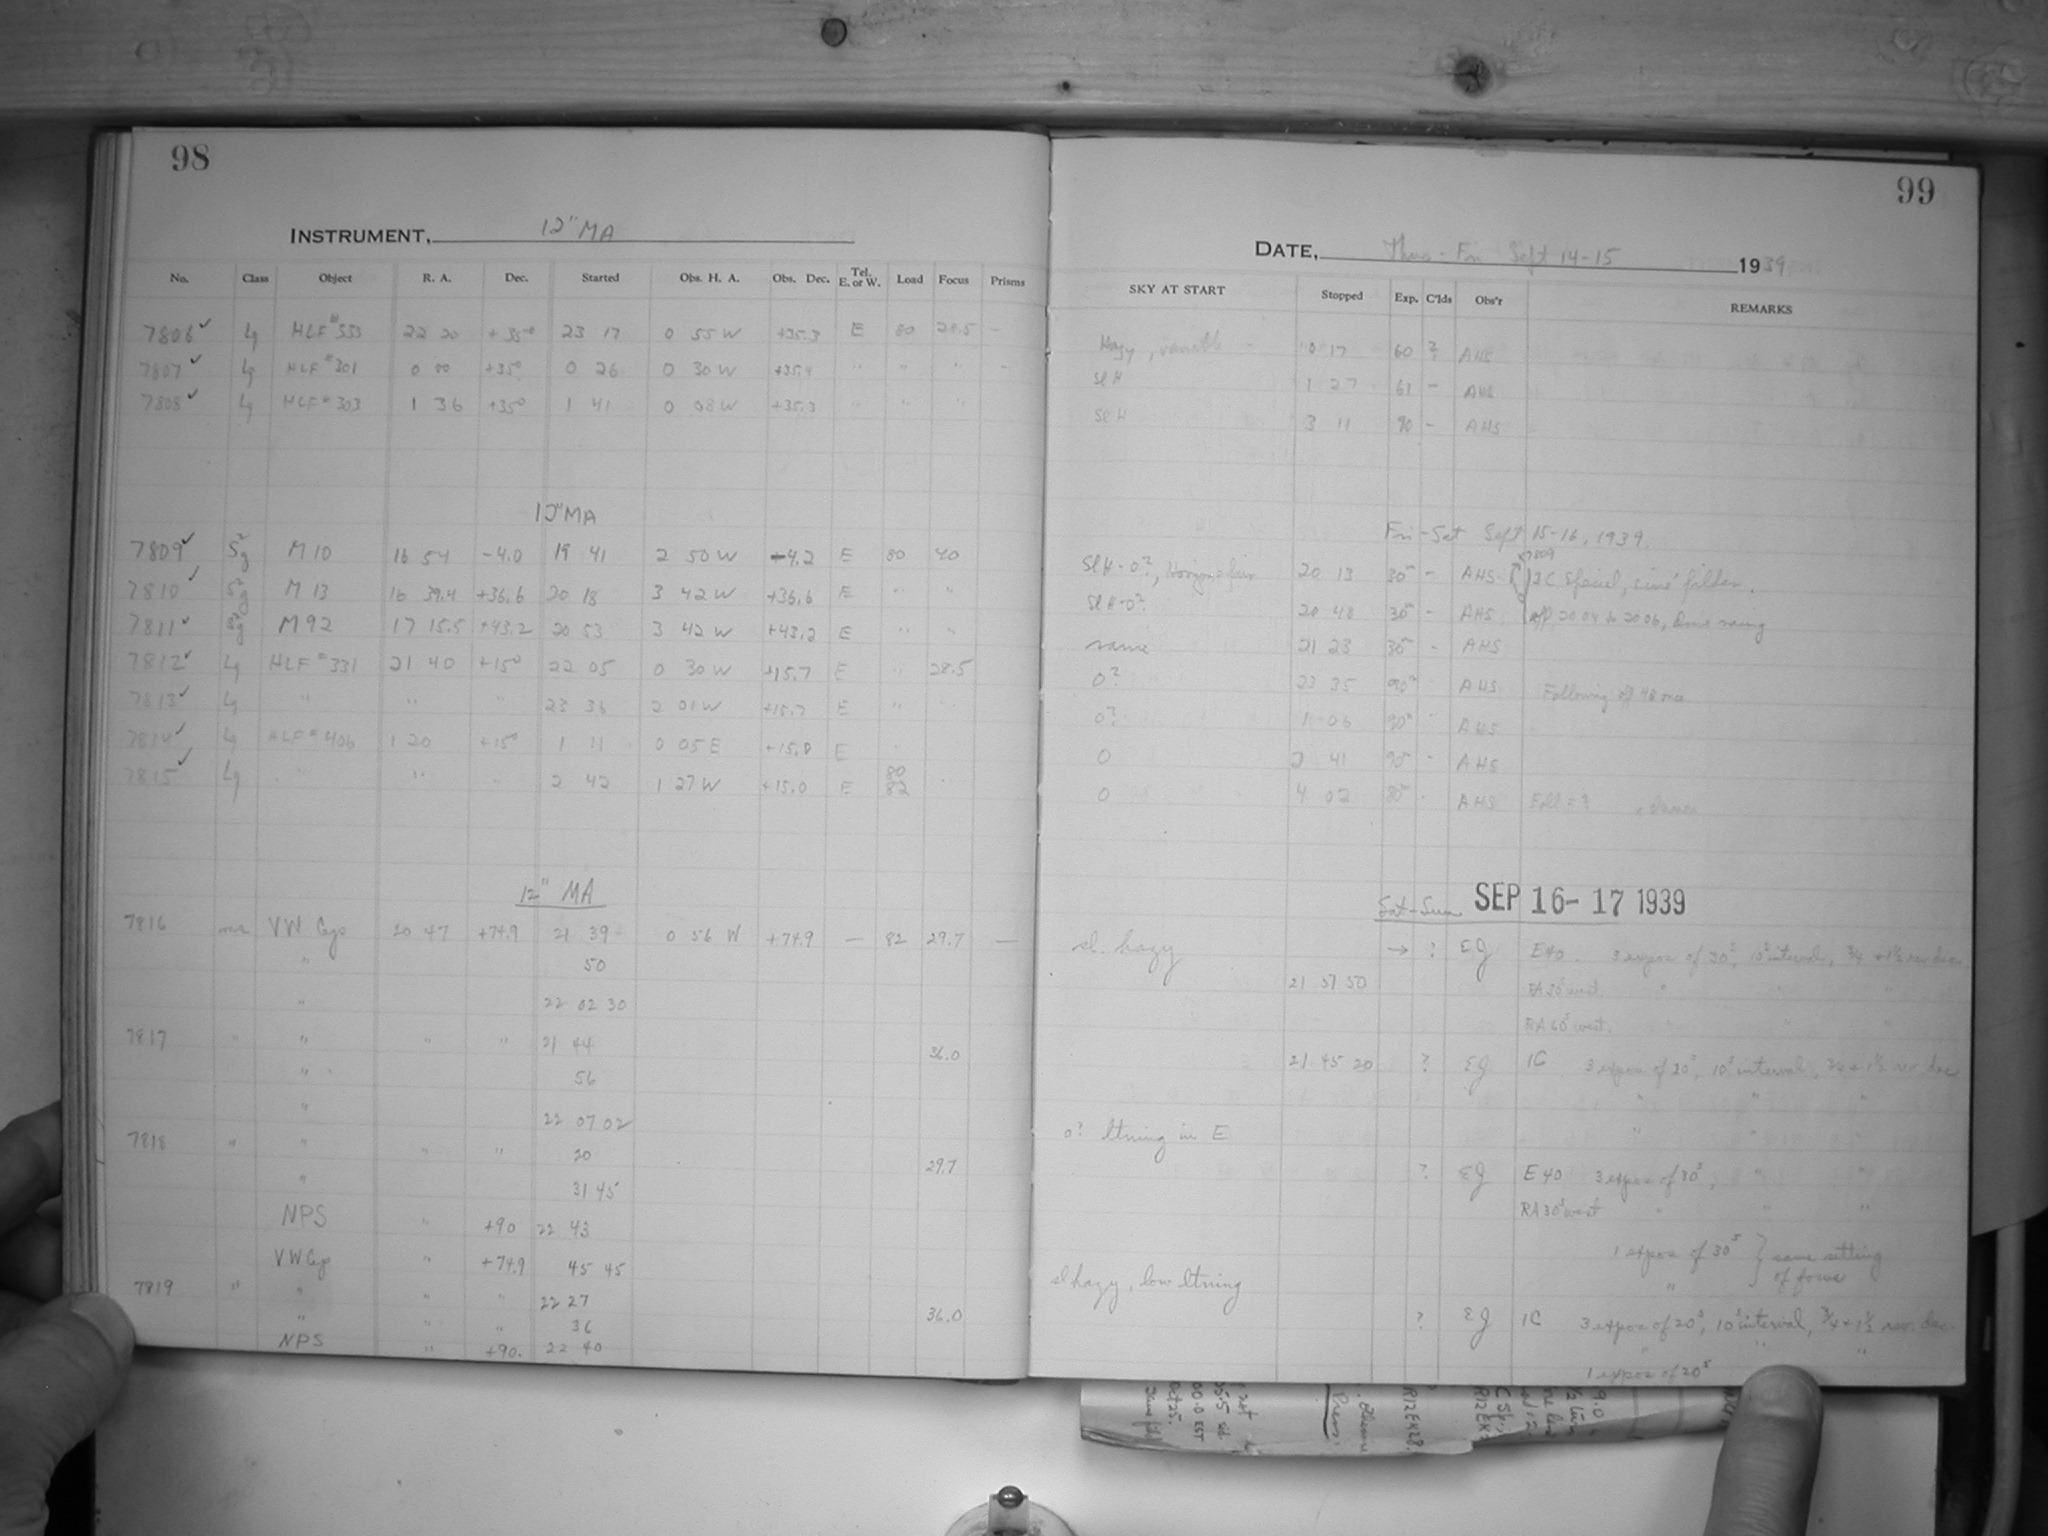 98
INSTRUMENT, 12" MA
No. Class Object R. A. Dec. Started Obs. H. A. Obs. Dec. Tel. E. or W. Load Focus Prisms
7806 ✓ Lg HLF #333 22 20 +35° 23 17 0 55 W +35.3 E 80 28.5 -
7807 ✓ Lg HLF #301 0 00 +35° 0 26 0 30 W +35.4 " " " -
7808 ✓ Lg HLF #303 1 36 +35° 1 41 0 08 W +35.3 " " "
12" MA
7809 ✓ M 10 16 54 -4.0 19 41 2 50 W -4.2 E 80 40
7810 ✓ M 13 16 39.4 +36.6 20 18 3 42 W +36.6 E " "
7811 ✓ M 92 17 15.5 +43.2 20 53 3 42 W +43.2 E " "
7812 ✓ Lg HLF #331 21 40 +15° 22 05 0 30 W +15.7 E " 28.5
7813 ✓ Lg " " " 23 36 2 01 W +15.7 E "
7814 ✓ Lg HLF #406 1 20 +15° 1 11 0 05 E +15.0 E
7815 ✓ Lg " " 2 42 1 27 W +15.0 E 80 82
12" MA
7816 VW Ceps 20 47 +74.9 21 39 0 56 W +74.9 — 82 29.7 —
" 50
" 22 02 30
7817 " " " " 21 44 36.0
" 56
" 22 07 02
7818 " " " " 20 29.7
" 31 45
NPS " +90 22 43
VW Cep " +74.9 45 45
7819 " " " " 22 27 36.0
" " " 36
NPS " +90. 22 40
99
DATE, Thurs - Fri Sept 14-15 1939
SKY AT START Stopped Exp. C'lds Obs'r REMARKS
Hazy, variable 0 17 60 ? AHS
Sl H 1 27 61 - AHS
Sl H 3 11 90 - AHS
Fri - Sat Sept 15-16, 1939.
Sl H - 0?, 20 13 - AHS 7809 IC Special, cine' filter.
Sl H-0? 20 48 - AHS 20 04 to 20 06,
same 21 23 - AHS
0? 23 35 AHS Following off
0? 1 06 AHS
0 2 41 - AHS
0 4 02 AHS
Sat - Sun SEP 16-17 1939
sl. hazy → ? EJ E40. 3 expos of 30s, 10s interval, 3/4 + 1 1/2 rev. dec
21 51 50 RA 30s west. " " "
RA 60s west. " " "
21 45 20 ? EJ IC 3 expos of 20s, 10s interval, 3/4 + 1 1/2 rev. dec
" " "
0? ltning in E " " "
? EJ E 40 3 expos of 30s, " "
RA 30s west " " "
1 expos of 30s } same setting
" of focus
sl hazy, low ltning
? EJ IC 3 expos of 20s, 10s interval, 3/4 + 1 1/2 rev. dec.
" " "
1 expos of 20s